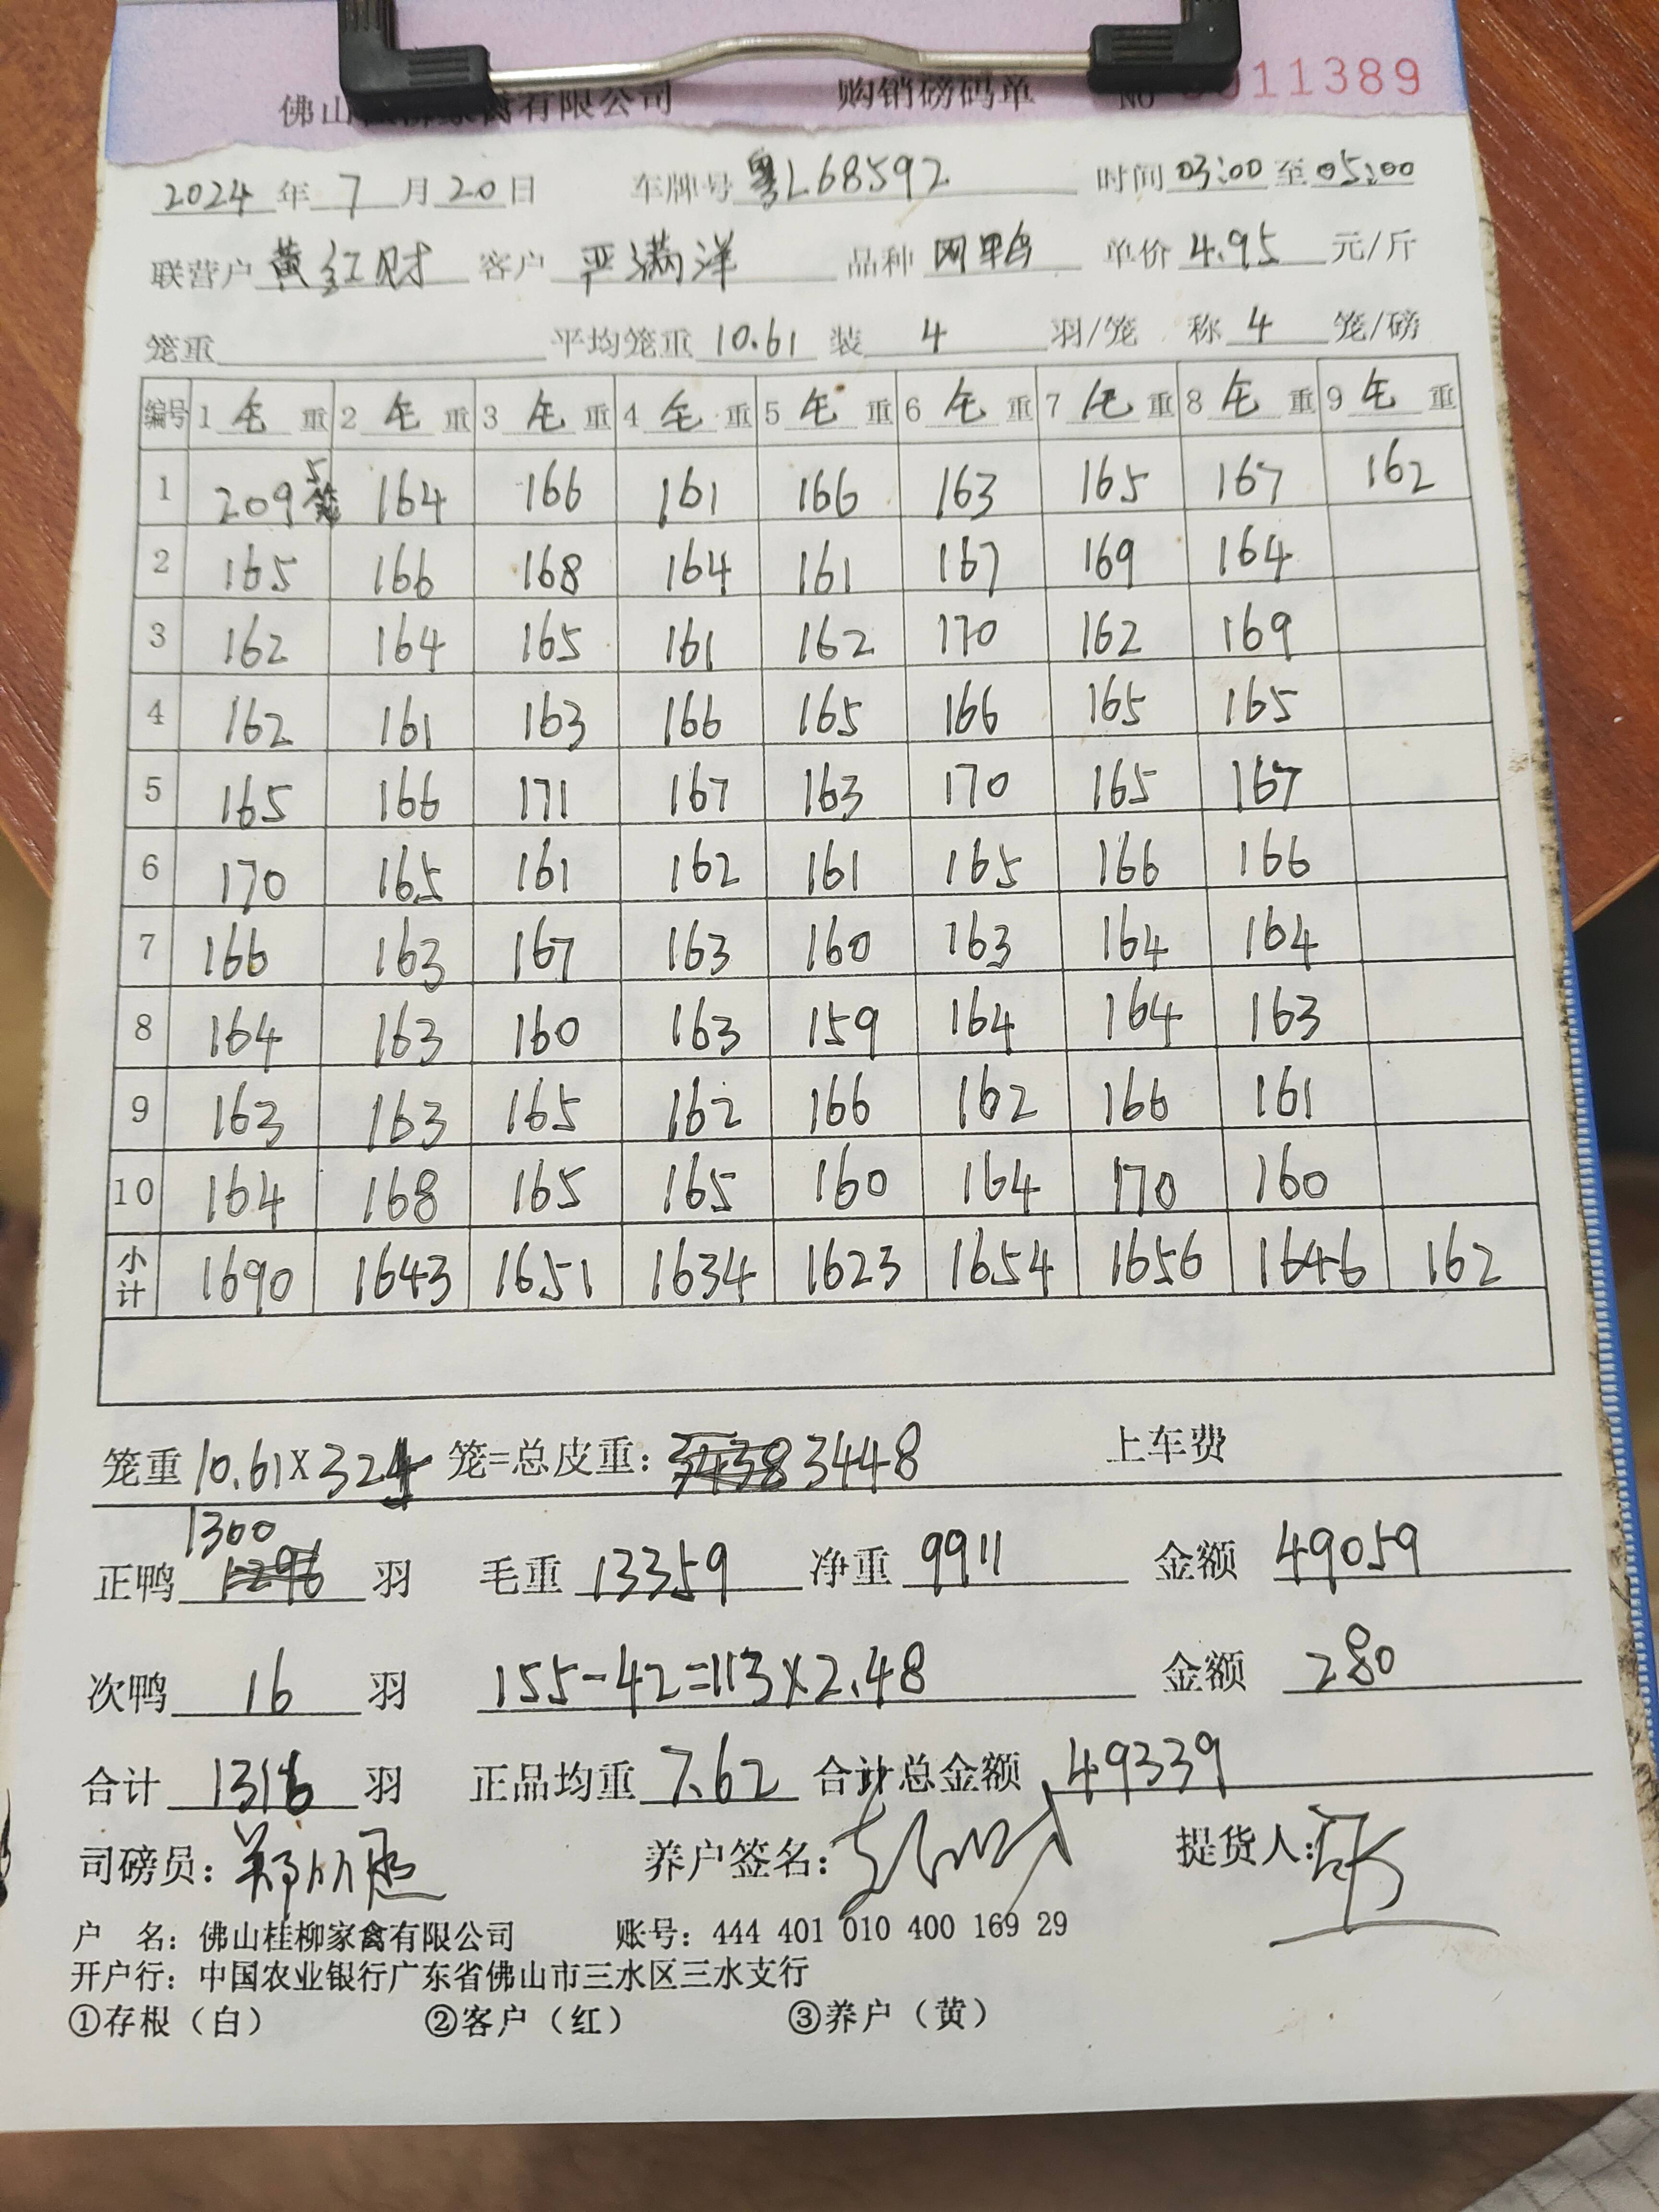 佛山 家禽有限公司 购销磅码单 NO 11389
2024年7月20日 车牌号粤L68592 时间03:00至05:00
联营户黄红财 客户严满洋 品种网鸭 单价4.95元/斤
笼重 平均笼重10.61装4羽/笼 称4笼/磅
编号 1毛重 2毛重 3毛重 4毛重 5毛重 6毛重 7毛重 8毛重 9毛重
1 209 5笼 164 166 161 166 163 165 167 162
2 165 166 168 164 161 167 169 164
3 162 164 165 161 162 170 162 169
4 162 161 163 166 165 166 165 165
5 165 166 171 167 163 170 165 167
6 170 165 161 162 161 165 166 166
7 166 163 167 163 160 163 164 164
8 164 163 160 163 159 164 164 163
9 163 163 165 162 166 162 166 161
10 164 168 165 165 160 164 170 160
小计 1690 1643 1651 1634 1623 1654 1656 1646 162
笼重10.61X324笼=总皮重:3448 上车费
正鸭1300羽 毛重13359净重9911 金额49059
次鸭16羽 155-42=113X2.48 金额280
合计1316羽 正品均重7.62合计总金额49339
司磅员: 养户签名: 提货人:
户 名:佛山桂柳家禽有限公司 账号:444 401 010 400 169 29
开户行:中国农业银行广东省佛山市三水区三水支行
①存根(白) ②客户(红) ③养户(黄)